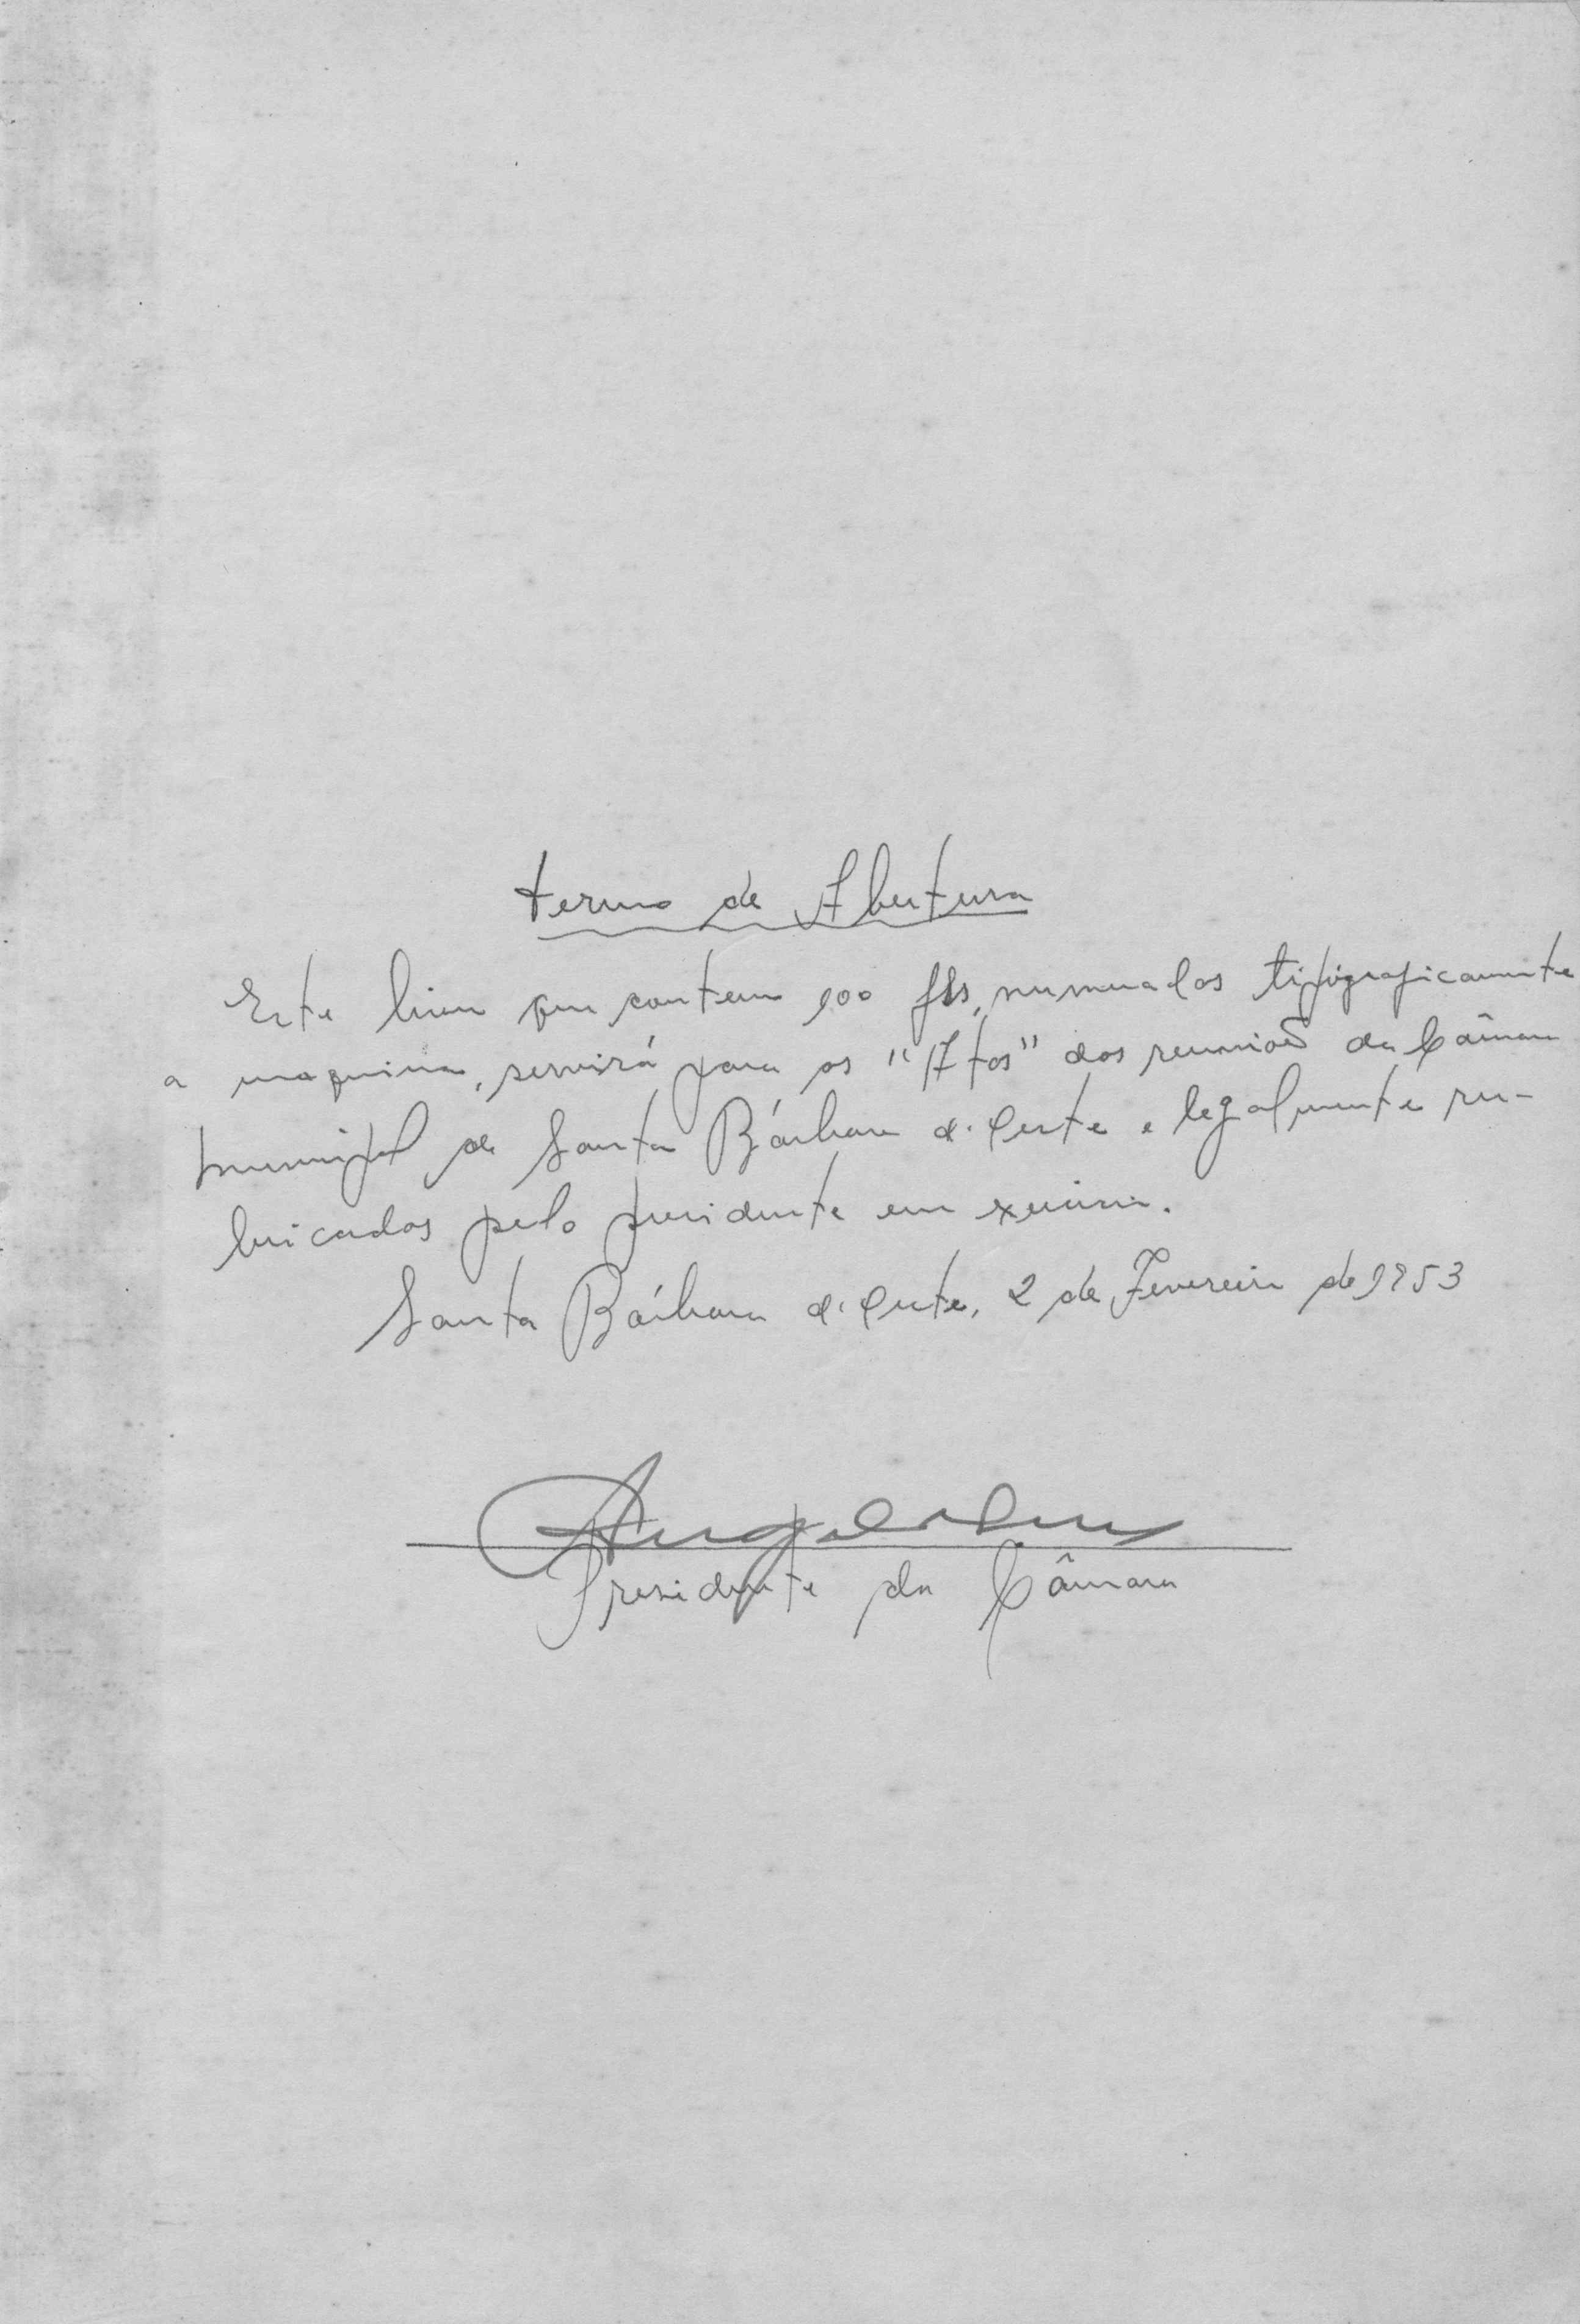 Termo de Abertura
Este livro que contem 100 fls, numeradas tipograficamente
a maquina, servirá para as "Atas" das reuniões da Câmara
Municipal de Santa Bárbara d'Oeste e legalmente ru-
bricadas pelo presidente em exercicio.
Santa Bárbara d'Oeste, 2 de Fevereiro de 1953
Presidente da Câmara